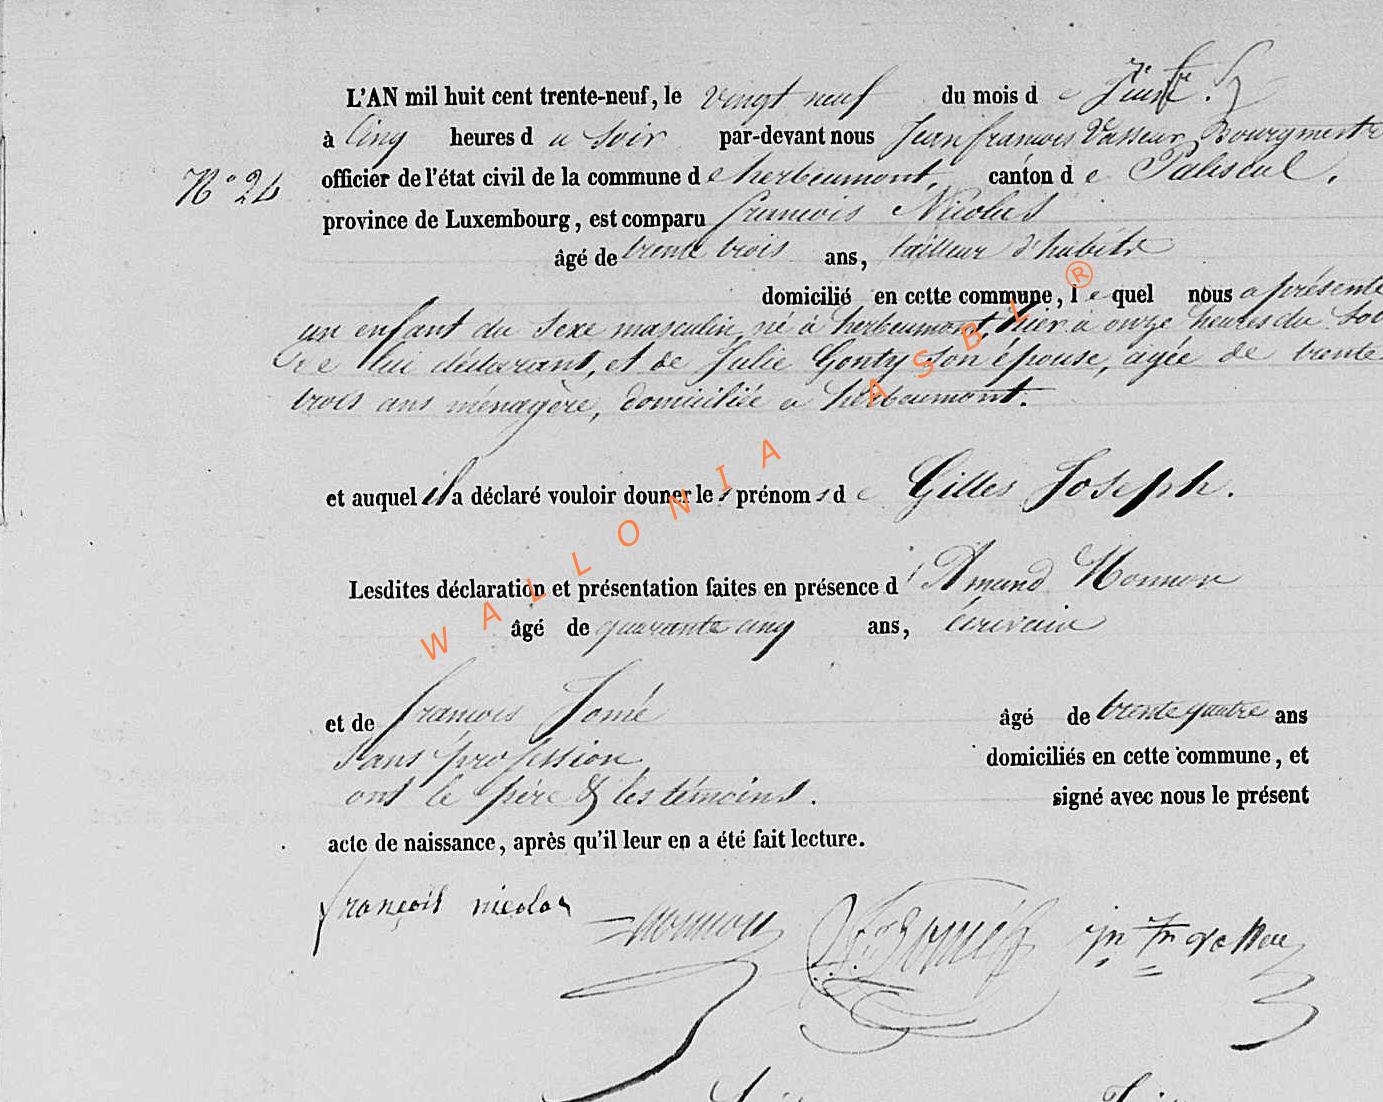 L'AN mil huit cent trente-neuf, le vingt neuf du mois de Juin.
à Cinq heures du soir par-devant nous Jean francois Vasseur Bourgmestre
N° 24 officier de l'état civil de la commune de herbeumont, canton de Paliseul,
province de Luxembourg, est comparu francois Nicolas
âgé de trente trois ans, tailleur d'habits
domicilié en cette commune, lequel nous a présenté
un enfant du sexe masculin, né à herbeumont, hier à onze heures du soir
De lui déclarant, et de Julie Gonty son épouse, agée de trente
trois ans ménagère, domiciliée a herbeumont.
et auquel il a déclaré vouloir donner les prénoms de Gilles Joseph.
Lesdites déclaration et présentation faites en présence d'Amand Monnon
âgé de quarante cinq ans, écrivain
et de francois Jomé âgé de trente quatre ans
Sans profession domiciliés en cette commune, et
ont le père & les témoins. signé avec nous le présent
acte de naissance, après qu'il leur en a été fait lecture.
françois nicolas Monnon F. Jomé jn fn
WALLONIA ASBL ®